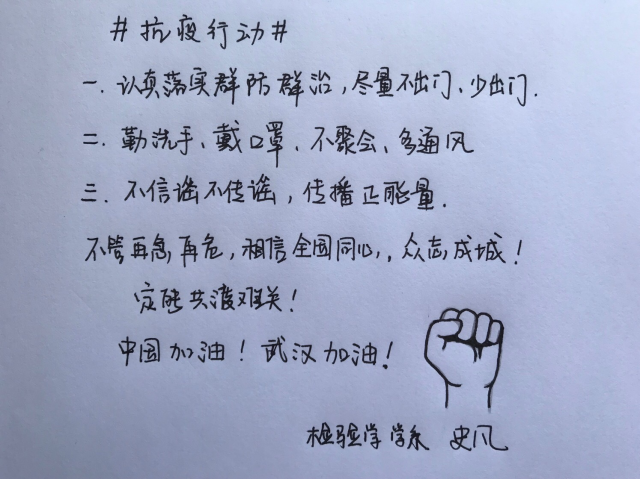 #抗疫行动#
一.认真落实群防群治,尽量不出门、少出门.
二.勤洗手、戴口罩、不聚会、多通风
三.不信谣不传谣,传播正能量.
不管再急再危,相信全国同心,,众志成城!
定能共渡难关!
中国加油!武汉加油!
检验学学系 史凤